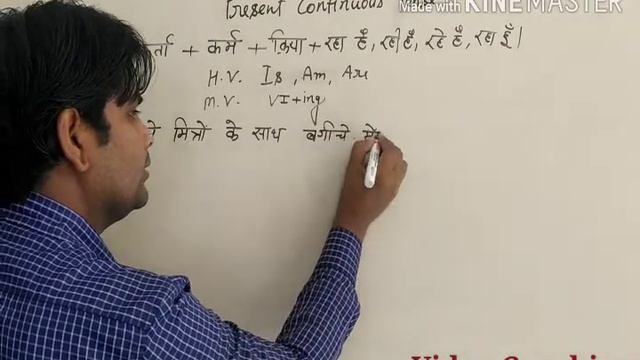 Present Continuous
Made with KINEMASTER
+ कर्म + क्रिया + रहा हैं, रही हैं, रहे हैं, रहा हूँ।
H.V. Is, Am, Are
M.V. VI+ing
मित्रो के साथ बगीचे में